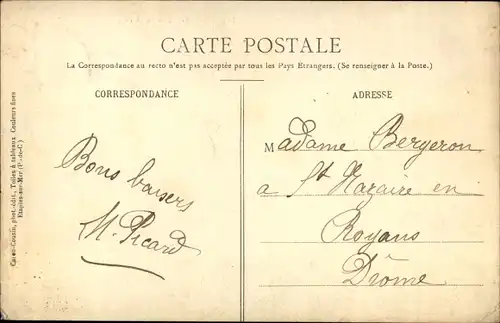 CARTE POSTALE
La Correspondance au recto n'est pas acceptée par tous les Pays Etrangers. (Se renseigner à la Poste.)
CORRESPONDANCE
Bons baisers
M. Picard
ADRESSE
Madame Bergeron
a St Nazaire en
Royans
Drôme
phot.-édit., Toiles à tableaux, Couleurs fines
Etaples-sur-Mer (P.-de-C.)